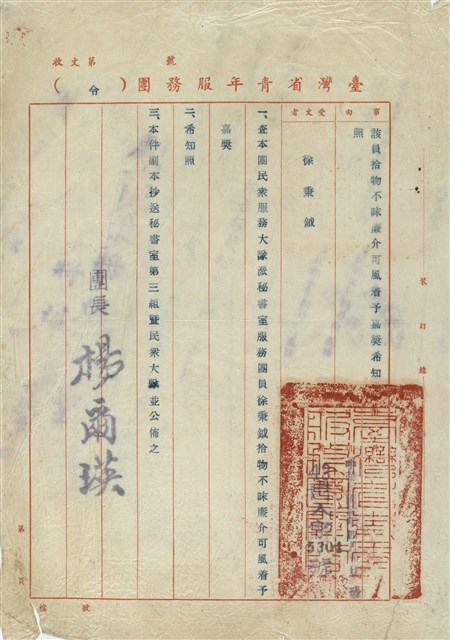 收文第 號
臺灣省青年服務團（令）
事由
受文者
該員拾物不昧廉介可風着予嘉獎希知
照
徐秉鉞
一、查本團民衆服務大隊派秘書室服務團員徐秉鉞拾物不昧廉介可風着予
嘉獎
二、希知照
三、本件副本抄送秘書室第三組暨民衆大隊並公佈之
團長
楊爾瑛
裝訂線
5301
號
第 頁
檔 號